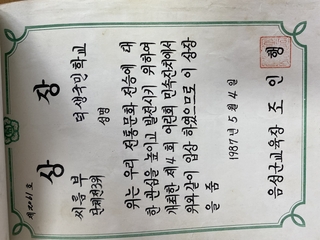 상 장
씨름부 덕생국민학교
단체전3위 성명
위는 우리 전통문화 전승에 대
한 관심을 높이고 발전시키 위하여
개최한 제4회 어린이 민속잔치에서
위와같이 입상 하였으므로 이 상장
을 줌
1987년 5월 4일
음성군교육장 조 인